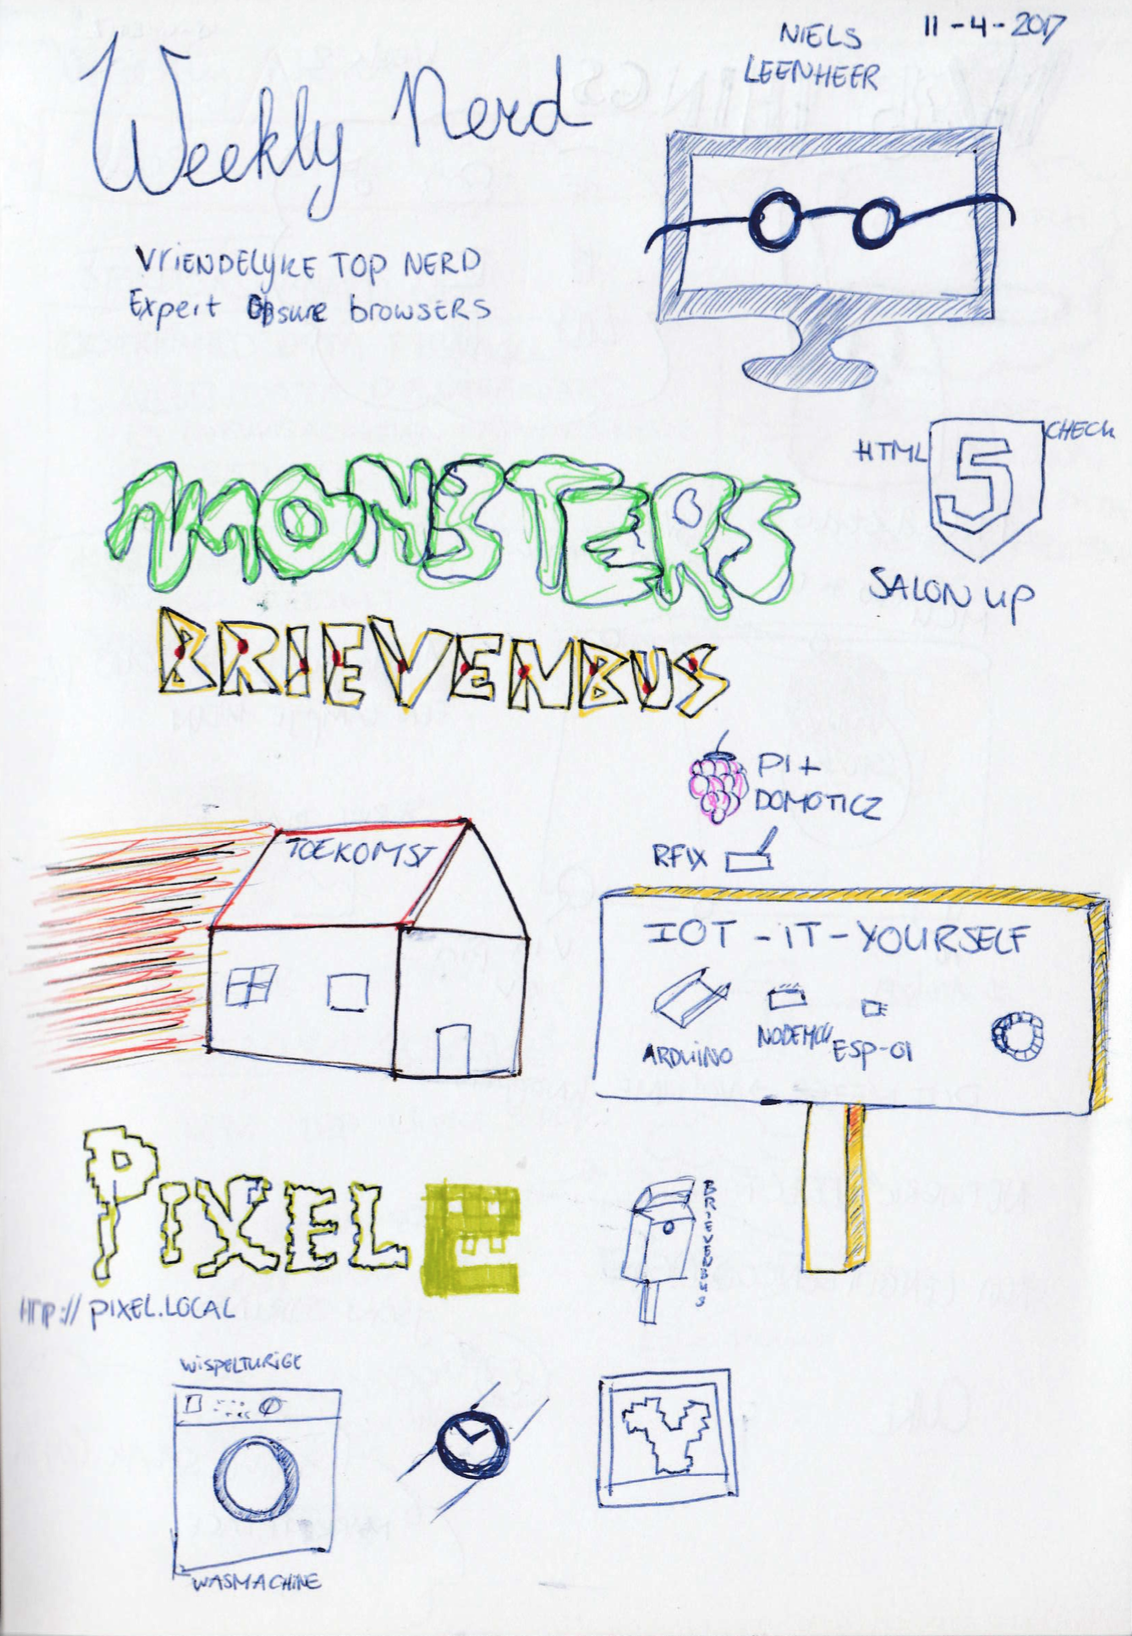 Weekly Nerd
NIELS
LEENHEER
11-4-2017
VRIENDELYKE TOP NERD
Expert Obsure browsers
HTML 5 CHECK
SALON UP
MONSTERS
BRIEVENBUS
PI +
DOMOTICZ
RFIX
TOEKOMST
IOT-IT-YOURSELF
ARDUINO
NODEMCU
ESP-01
PIXEL
e
http://PIXEL.LOCAL
BRIEVENBUS
WISPELTURIGE
WASMACHINE